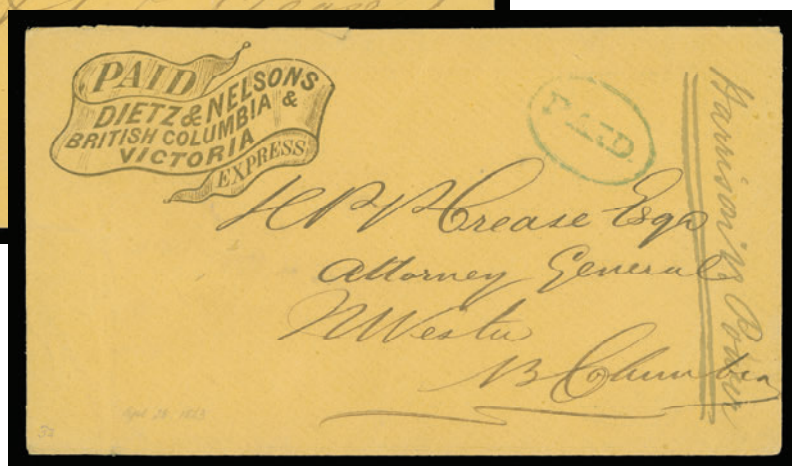 PAID
DIETZ & NELSONS
BRITISH COLUMBIA &
VICTORIA
EXPRESS
PAID
H P P Crease Esqr
Attorney General
N Westr
B Columbia
Harrison's
32